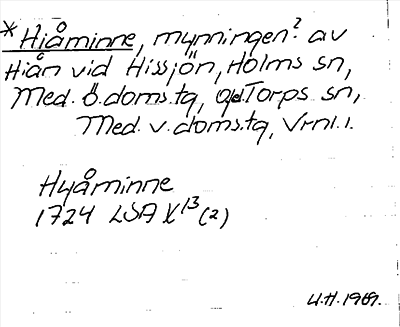 * Hiåminne, mynningen? av
Hiån vid Hissjön, Holms sn,
Med. ö. doms.tg, och Torps sn,
Med. v. doms.tg, Vrnl.1.
Hyåminne
1724 LSA X13 (2)
U.H. 1969.